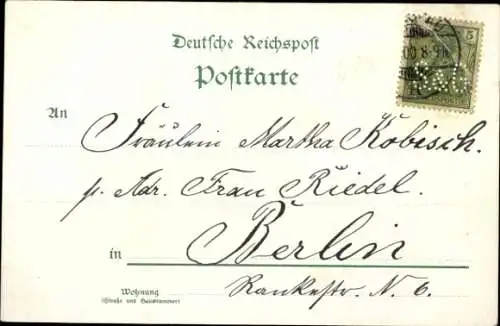 Deutsche Reichspost
Postkarte
5
An
Fräulein Martha Kobisch.
p. Adr. Frau Riedel.
in Berlin
Wohnung
(Straße und Hausnummer)
Rankestr. N. 6.